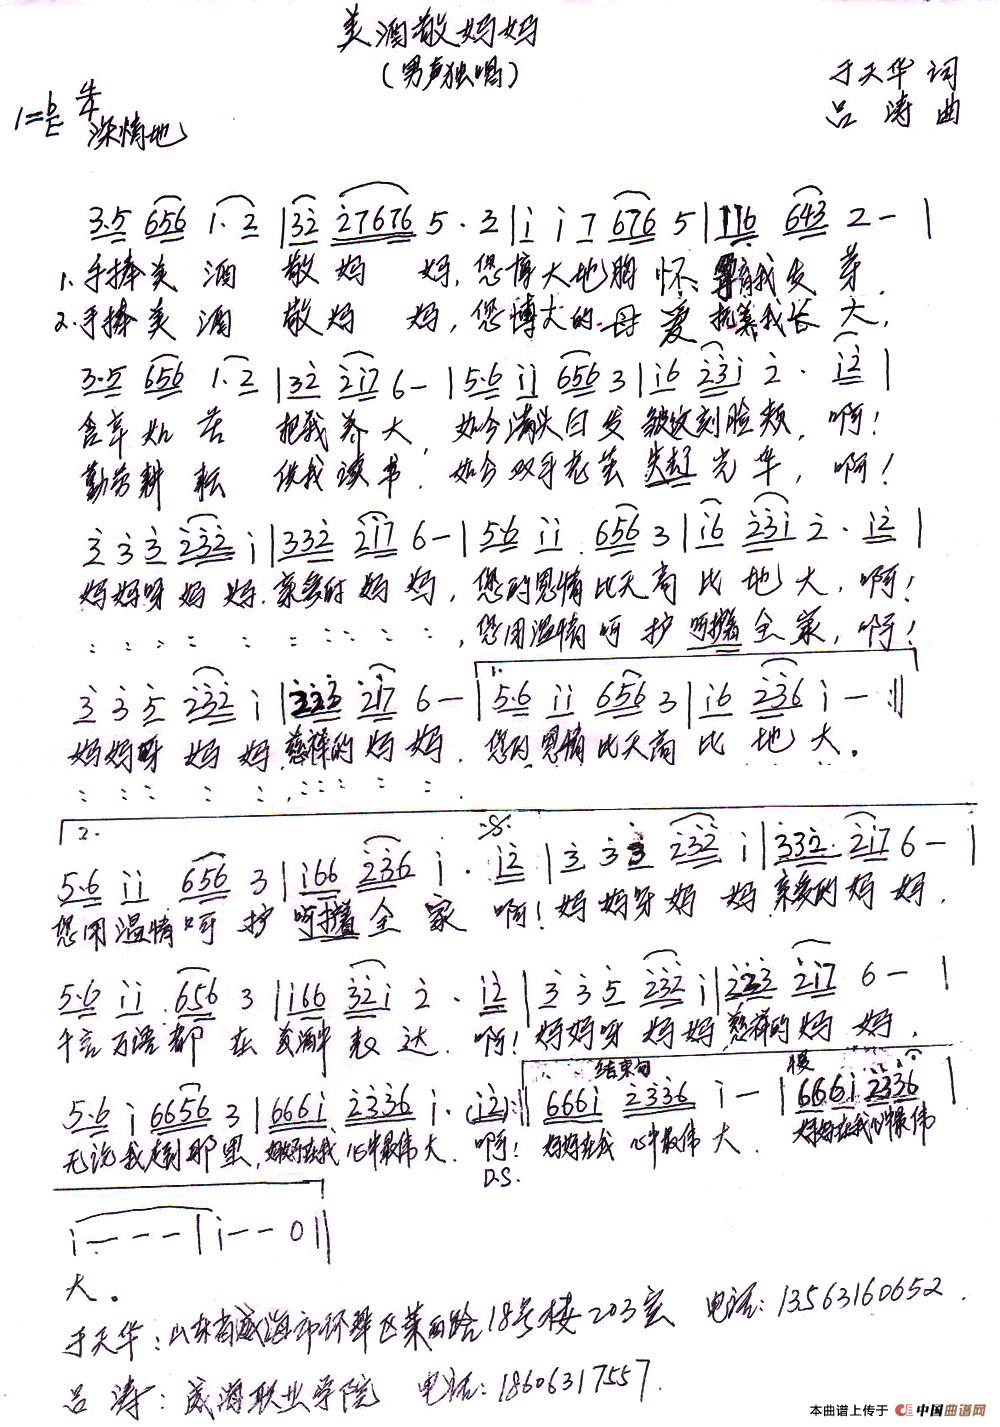 美酒敬妈妈
(男声独唱)
于天华 词
1=bE 4/4
吕涛 曲
深情地
3·5 656 1·2 |32 27676 5·3|i i7 676 5|116 643 2-|
1.手捧美酒 敬妈妈,您博大地胸怀 育我发芽.
2.手捧美酒 敬妈妈,您博大的母爱 抚养我长大,
3·5 656 1·2 |32 217 6-|5·6 ii 656 3|i6 23i 2· i2|
含辛如苦 把我养大,如今满头白发 皱纹刻脸颊,啊!
勤劳耕耘 供我读书,如今双手老茧 失去了光华,啊!
3 3 3 232 i|332 2i7 6-|5·6 ii 656 3|i6 23i 2· i2|
妈妈呀妈妈.亲爱的妈妈,您的恩情比天高比地大,啊!
您用温情呵护 呵护着全家,啊!
3 3 5 232 i|333 2i7 6-|1. 5·6 ii 656 3|i6 236 i-:||
妈妈呀妈妈 慈祥的妈妈.您的恩情比天高比地大。
2.
5·6 ii 656 3|i66 236 i· i2|3 3 3 232 i|332 2i7 6-|
您用温情呵护 呵护着全家 啊!妈妈呀妈妈 亲爱的妈妈,
5·6 ii 656 3|i66 32i 2· i2|3 3 5 232 i|223 2i7 6-|
千言万语都在美酒中表达.啊!妈妈呀妈妈 慈祥的妈妈,
结束句
慢
5·6 i 6656 3|666i 2336 i·(i2):||666i 2336 i-|666i 2336|
无论我走到那里,妈妈在我心中最伟大.啊!妈妈在我心中最伟大.妈妈在我心中最伟
D.S.
i---|i--0||
大。
于天华:山东省威海市环翠区莱西路18号楼203室 电话:13563160652.
吕涛:威海职业学院 电话:18606317557.
本曲谱上传于 中国曲谱网